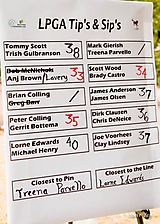 LPGA Tip's & Sip's
Tommy Scott
Trish Gulbranson 38
Mark Gierish
Treena Parvello /
Bob McNichols
Anj Brown/Lavery 33
Scott Wood
Brady Castro 34
Brian Colling /
Greg Baw
James Anderson
James Olsen 37
Peter Colling
Gerrit Bottema 35
Dirk Clausen
Chris DeNeice 36
Lorne Edwards
Michael Henry 40
Joe Voorhees
Clay Lindsey 37
Closest to Pin
Treena Parvello
Closest to the Line
Lorne Edwards